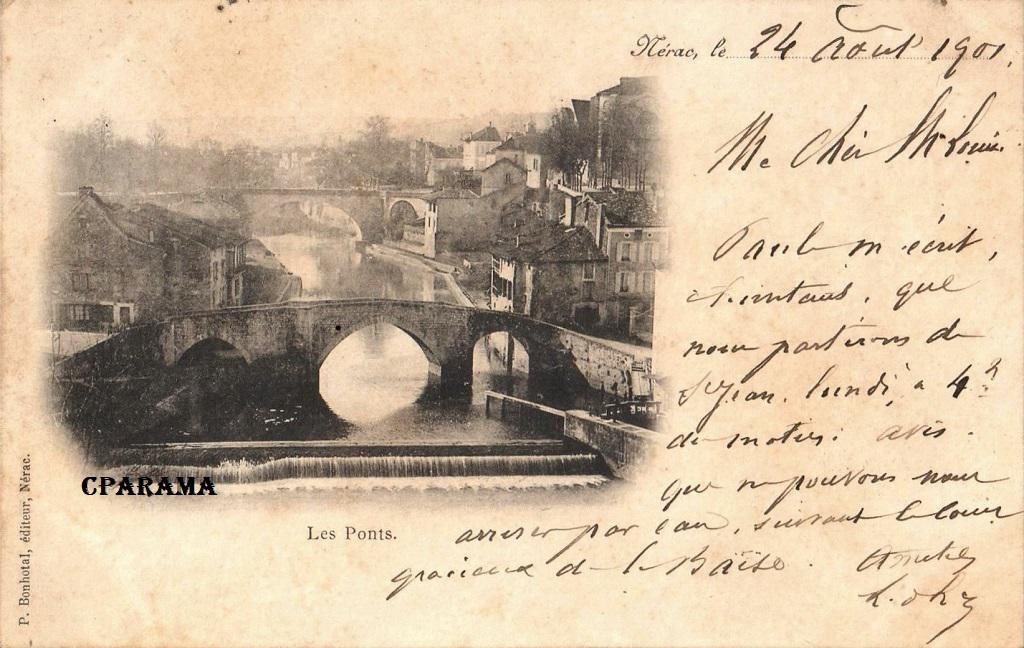 Nérac, le 24 Août 1901.
Mon Cher
Paul m'écrit,
que
nous partirons de
St Jean, lundi, à 4h
du matin. avis.
que pouvons nous
arriver par eau, suivant le cours
gracieux de la Baïse.
CPARAMA
Les Ponts.
P. Bonhotal, éditeur, Nérac.